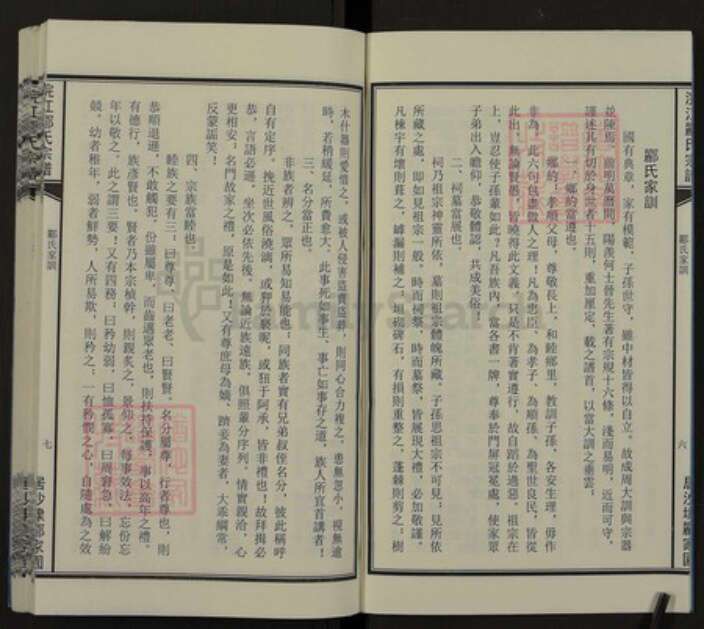 鄺氏家訓
國有典章，家有模範，子孫世守，雖中材皆得以自立。故成周大訓與宗器
並陳焉。前明萬曆間，陽羨何士晉先生著有宗規十六條，淺而易明，近而可守。
謹述其有切於身世者十五則，重加厘定，載之譜首，以當大訓之垂雲：
一、鄉約當遵也。
鄉約：孝順父母，尊敬長上，和睦鄉里，教訓子孫，各安生理，毋作
非為。此六句包盡做人之理！凡為忠臣、為孝子、為順孫、為聖世良民，皆從
此出。無論賢愚，皆曉得此文義，只是不肯著實遵行，故自蹈於過惡。祖宗在
上，豈忍使子孫輩如此？凡吾族內，當各書一牌，尊奉於門屏冠冕處，使家眾
子弟出入瞻仰，恭敬體認，共成美俗！
二、祠墓當展也。
祠乃祖宗神靈所依，墓則祖宗體魄所藏。子孫思祖宗不可見，見所依
所藏之處，即如見祖宗一般。時而祠祭，時而墓祭，皆展現大禮，必加敬謹。
凡棟宇有壞則葺之，罅漏則補之，垣砌碑石，有損則重整之，蓬棘則剪之。樹
木什器則愛惜之，或被人侵害盜賣盜葬，則同心合力複之。患無忽小，視無逾
時，若稍緩延，所費愈大。此事死如事生、事亡如事存之道，族人所宜首講者！
三、名分當正也。
非族者辨之，眾所易知易能也；同族者實有兄弟叔侄名分，彼此稱呼
自有定序。挽近世風俗澆漓，或狎於褻昵，或狃于阿承，皆非禮也！故拜揖必
恭，言語必遜，坐次必依先後。無論近族遠族，俱照輩分序列，情實親洽，心
更相安；名門故家之禮，原是如此！又有尊庶母為嫡，躋妾為妻者，大乖綱常，
反蒙謡笑！
四、宗族當睦也。
睦族之要有三：曰尊尊、曰老老、曰賢賢。名分屬尊，行者尊也，則
恭順退遜，不敢觸犯，份雖屬卑，而齒邁眾老也，則扶持保護，事以高年之禮。
有德行，族彥賢也，賢者乃本宗楨幹，則親炙之，景仰之，每事效法，忘份忘
年以敬之。此之謂三要！又有四務：曰矜幼弱、曰恤孤寡、曰周窘急、曰解紛
競。幼者稚年，弱者鮮勢，人所易欺，則矜之；一有矜憫之心，自隨處為之效
鄺氏家訓
六
鄺氏家訓
七